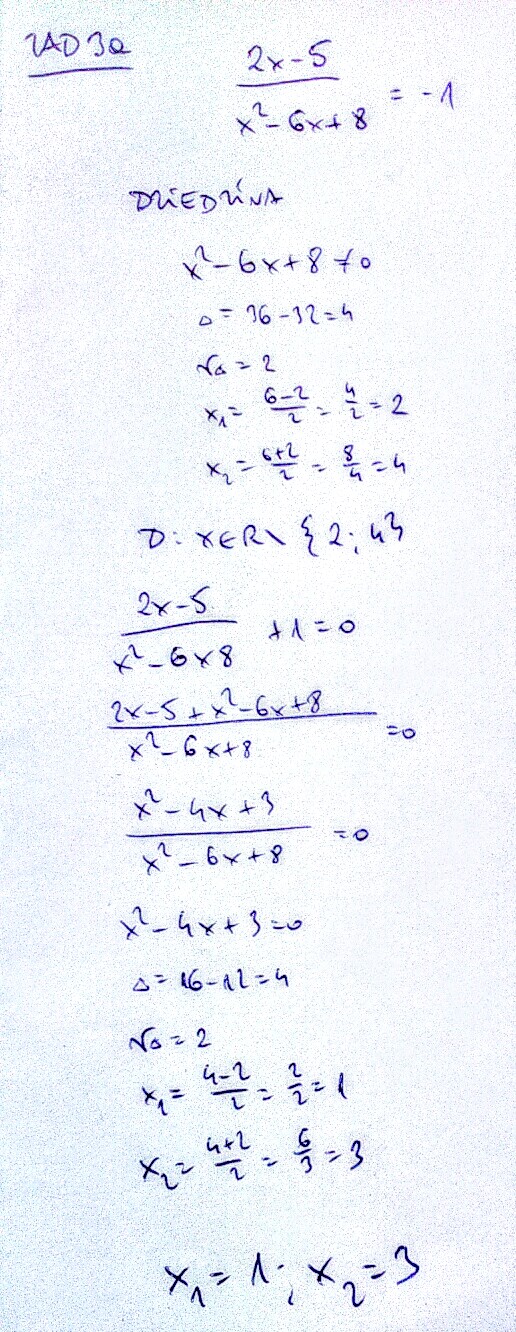 ZAD 3a
(2x-5)/(x²-6x+8) = -1
DZIEDZINA
x²-6x+8≠0
Δ = 36-32=4
√Δ = 2
x₁= (6-2)/2 = 4/2 = 2
x₂= (6+2)/2 = 8/4 = 4
D: x∈R\ {2; 4}
(2x-5)/(x²-6x8) +1=0
(2x-5+x²-6x+8)/(x²-6x+8) =0
(x²-4x+3)/(x²-6x+8) =0
x²-4x+3=0
Δ= 16-12=4
√Δ = 2
x₁= (4-2)/2 = 2/2 = 1
x₂= (4+2)/2 = 6/3 = 3
x₁=1; x₂=3